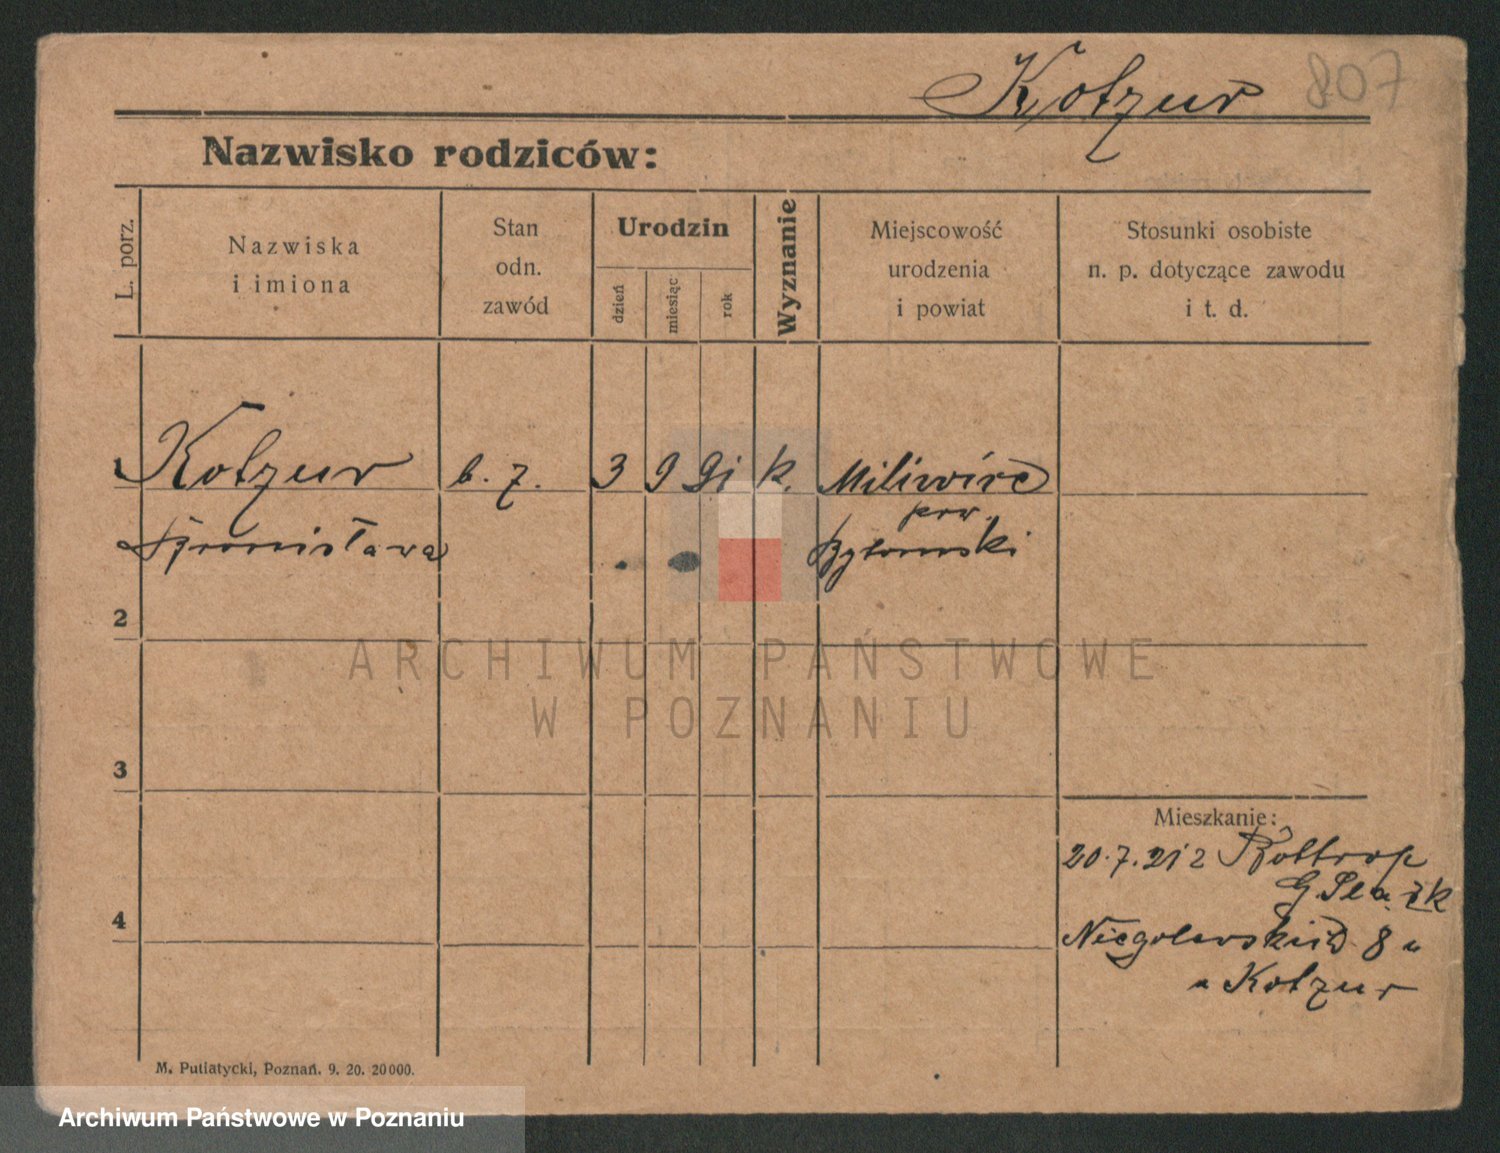 Kotzur 807
Nazwisko rodziców:
L. porz.
Nazwiska
i imiona
Stan
odn.
zawód
Urodzin
dzień
miesiąc
rok
Wyznanie
Miejscowość
urodzenia
i powiat
Stosunki osobiste
n. p. dotyczące zawodu
i t. d.
1 Kotzur b. z. 3 9 91 k.
pow.
Bronisława Bytomski
2
3
4
Mieszkanie:
20.7.21 z Bottrop
G. Śląsk
Niegolewskich 8 u
Kotzur
M. Putiatycki, Poznań. 9. 20. 20000.
ARCHIWUM PAŃSTWOWE
W POZNANIU
Archiwum Państwowe w Poznaniu